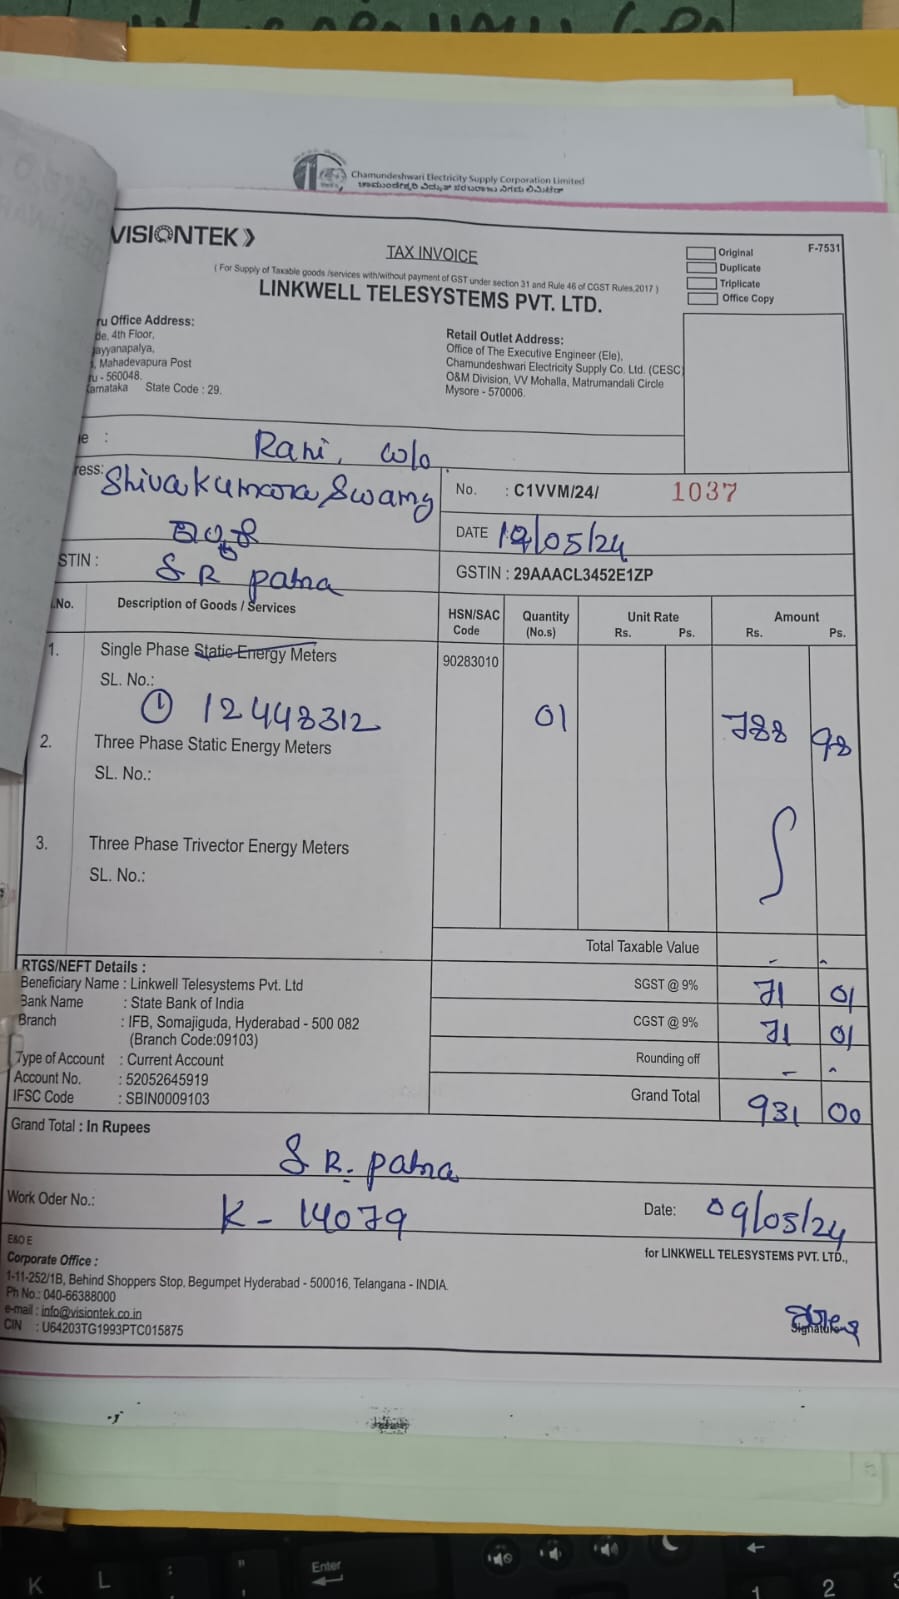 Chamundeshwari Electricity Supply Corporation Limited
ಚಾಮುಂಡೇಶ್ವರಿ ವಿದ್ಯುತ್ ಸರಬರಾಜು ನಿಗಮ ಲಿಮಿಟೆಡ್
VISIONTEK
TAX INVOICE
Original
F-7531
Duplicate
Triplicate
Office Copy
( For Supply of Taxable goods /services with/without payment of GST under section 31 and Rule 46 of CGST Rules,2017 )
LINKWELL TELESYSTEMS PVT. LTD.
ru Office Address:
de, 4th Floor,
ayyanapalya,
, Mahadevapura Post
ru - 560048.
arnataka State Code : 29.
Retail Outlet Address:
Office of The Executive Engineer (Ele),
Chamundeshwari Electricity Supply Co. Ltd. (CESC)
O&M Division, VV Mohalla, Matrumandali Circle
Mysore - 570006.
e : Rani, w/o
ress: Shivakumara Swamy
S R patna
No. : C1VVM/24/ 1037
DATE /05/24
STIN :
GSTIN : 29AAACL3452E1ZP
.No. Description of Goods / Services HSN/SAC Code Quantity (No.s) Unit Rate Rs. Ps. Amount Rs. Ps.
1. Single Phase Static Energy Meters 90283010
SL. No.:
① 12448312 01 788 98
2. Three Phase Static Energy Meters
SL. No.:
3. Three Phase Trivector Energy Meters
SL. No.:
Total Taxable Value - -
SGST @ 9% 71 01
CGST @ 9% 71 01
Rounding off - -
Grand Total 931 00
RTGS/NEFT Details :
Beneficiary Name : Linkwell Telesystems Pvt. Ltd
Bank Name : State Bank of India
Branch : IFB, Somajiguda, Hyderabad - 500 082
(Branch Code:09103)
Type of Account : Current Account
Account No. : 52052645919
IFSC Code : SBIN0009103
Grand Total : In Rupees
S R. patna
Work Oder No.: K - 14079
Date: 09/05/24
E&O E
for LINKWELL TELESYSTEMS PVT. LTD.,
Corporate Office :
1-11-252/1B, Behind Shoppers Stop, Begumpet Hyderabad - 500016, Telangana - INDIA.
Ph No.: 040-66388000
e-mail : info@visiontek.co.in
CIN : U64203TG1993PTC015875
Signature
K
L
Enter
1
2